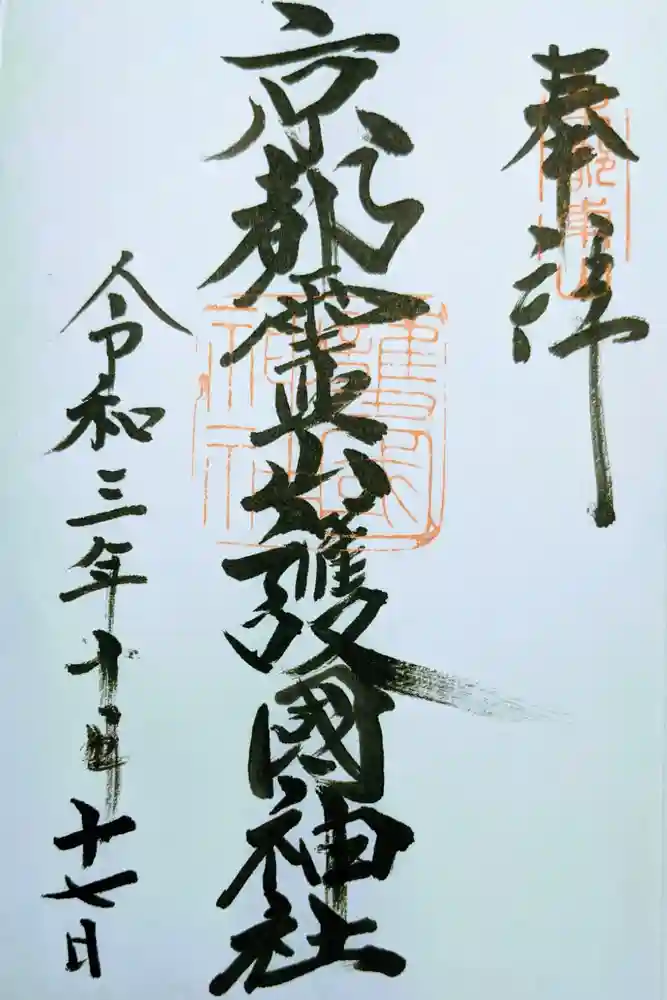 奉拝
京都霊山護國神社
護國
神社
令和三年十一月十七日